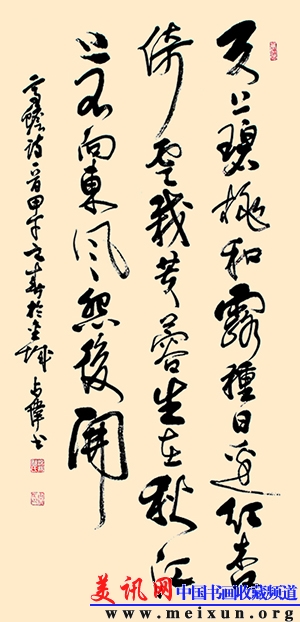 天上碧桃和露種日邊紅杏
倚雲栽芙蓉生在秋江
上不向東風怨後開
高蟾詩一首甲午之春於金城
美讯网中国书画收藏频道
www.meixun.org